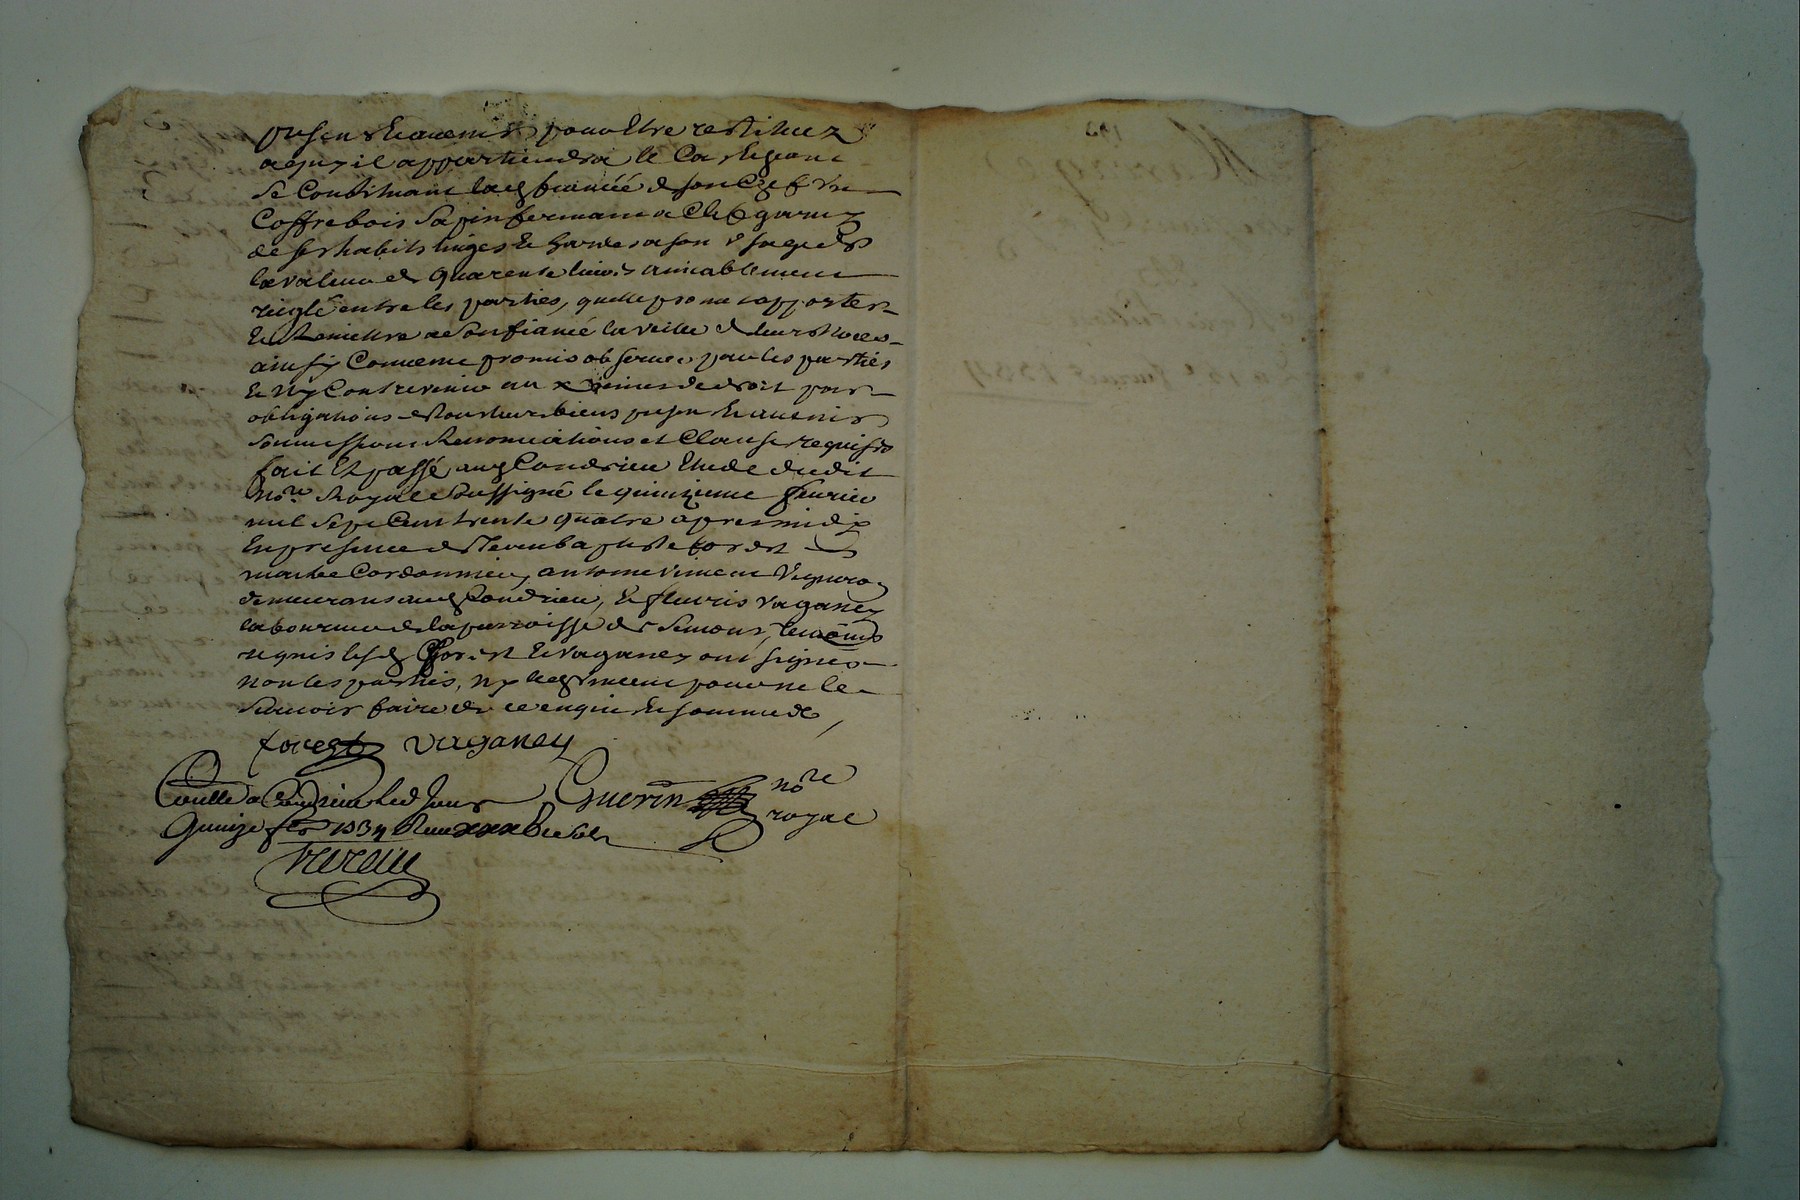 presen & avenir pour Estre restituez
a quy il appartiendra le Cas Escheant
se Constituant lad fiancéé de son Chef un
Coffre bois sapin fermant a Clef garny
de ses habits linges & hardes a son usage de
la valeur de quarente livres amiablement
reiglé entre les parties, quelle promet apporter
Et Remettre a son fiancé la veille de leurs Noces
ainsy Convenu promis observer par les parties
Et N'y Contrevenir aux peines de droit par
obligations de tous leurs biens presen & avenir
soumissions Renonciations et Clauses requises
fait Et passé aud Condrieu Etude dudit
no.re Royal Soussigné le quinzieme fevrier
mil Sept Cent trente quatre apres midy
En presence de Jean baptiste forest
maitre Cordonnier, antoine vincent
demeurans aud Condrieu, & fleuris Vaganey
laboureur de la parroisse de Semons, temoins
requis lesd forest & vaganey ont signés
non les parties, ny led vincent pour ne le
scavoir faire de ce enquis & sommés
forest vaganey
Conllé a Condrieu led Jour Guerin no.re
quinze fer 1734 Receu royal